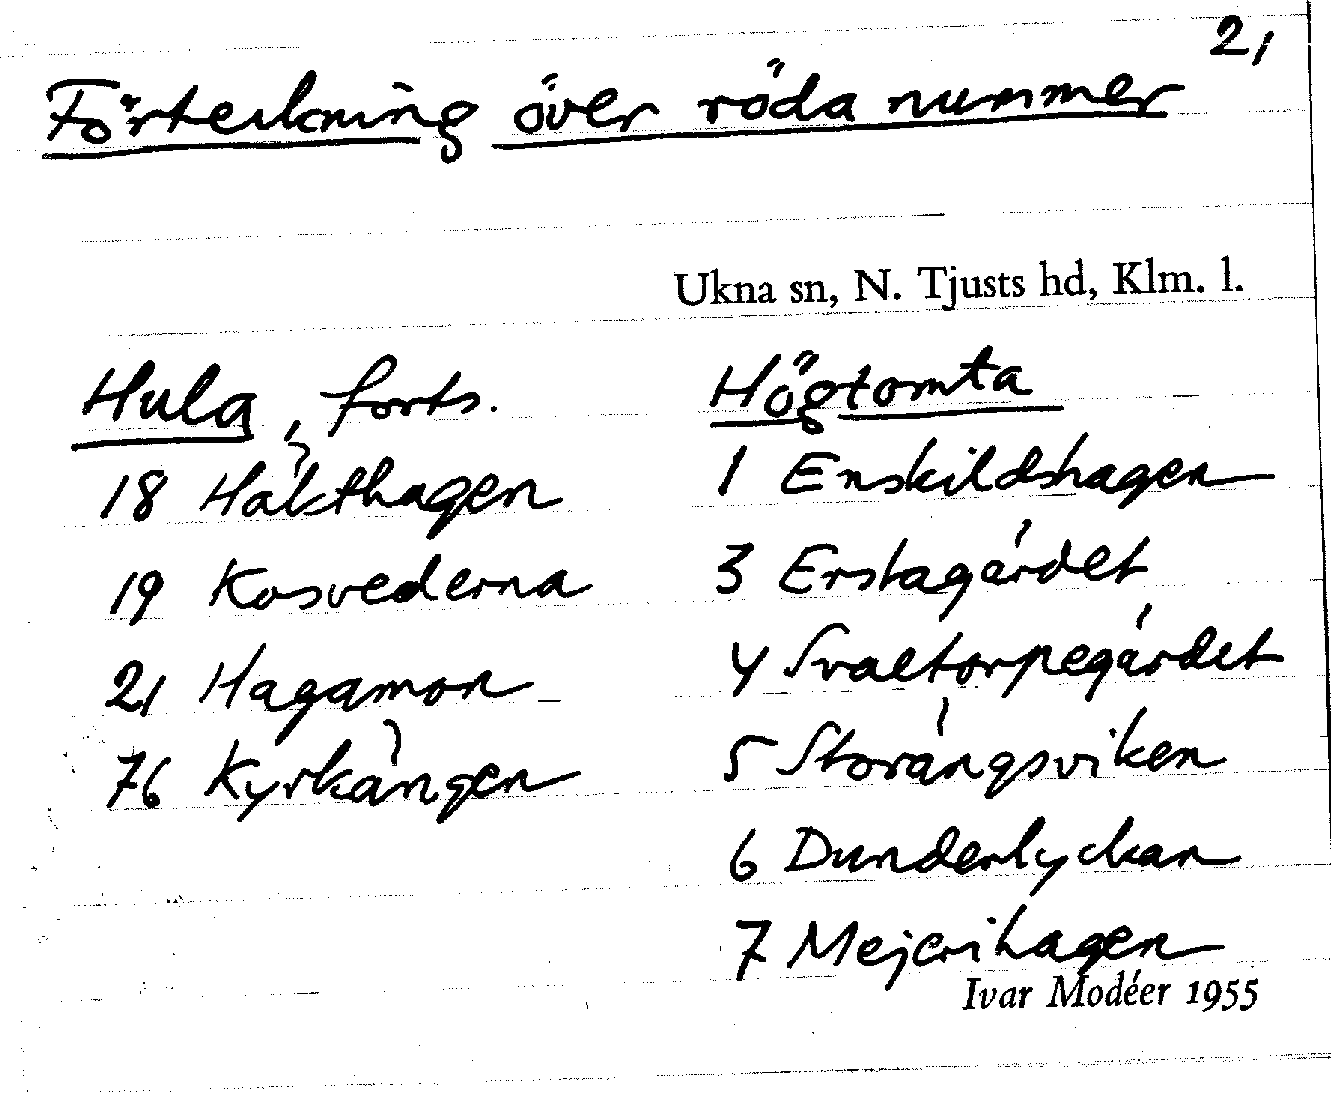 21
Förteckning över röda nummer
Ukna sn, N. Tjusts hd, Klm. l.
Hula, forts.
18 Håkthagen
19 Kosvederna
21 Hagamon
76 Kyrkängen
Högtomta
1 Enskildshagen
3 Erstagärdet
4 Svaltorpegärdet
5 Storängsviken
6 Dunderlyckan
7 Mejerihagen
Ivar Modéer 1955